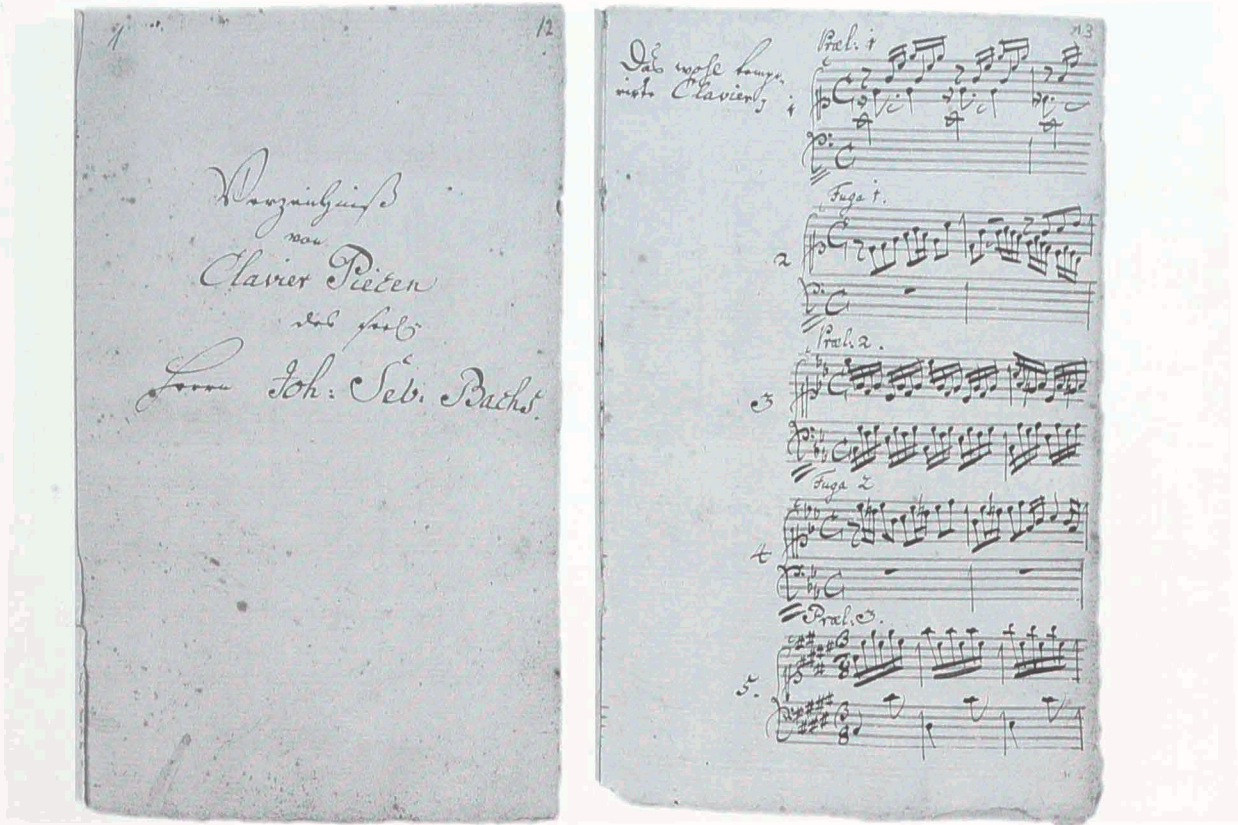 12
Verzeichniß
von
Clavier Piecen
des seel:
Herrn Joh: Seb: Bachs.
13
Das wohl tempe-
rirte Clavier
Præl: 1
1
Fuga 1.
2
Præl: 2.
3
Fuga 2
4
Præl: 3.
5.